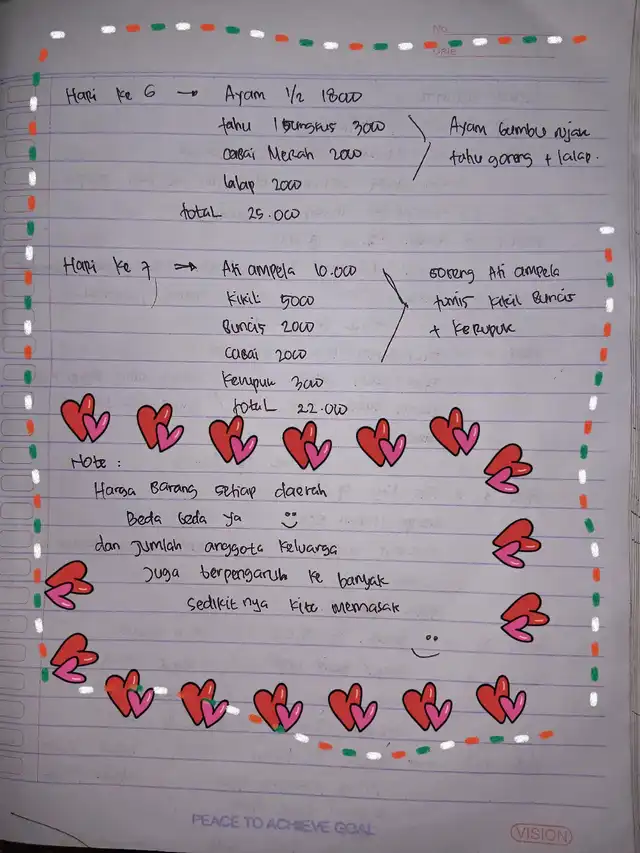 No
DATE
Hari ke 6 → Ayam 1/2 18000
tahu 1 bungkus 3000
cabai Merah 2000
lalap 2000
total 25.000
Ayam bumbu rujak
tahu goreng + lalap.
Hari ke 7 → Ati ampela 10.000
Kikil 5000
Buncis 2000
cabai 2000
Kerupuk 3000
total 22.000
Goreng Ati ampela
tumis kikil Buncis
+ Kerupuk
Note :
Harga Barang setiap daerah
Beda beda ya
dan jumlah anggota keluarga
Juga berpengaruh ke banyak
sedikit nya kita memasak
PEACE TO ACHIEVE GOAL
VISION